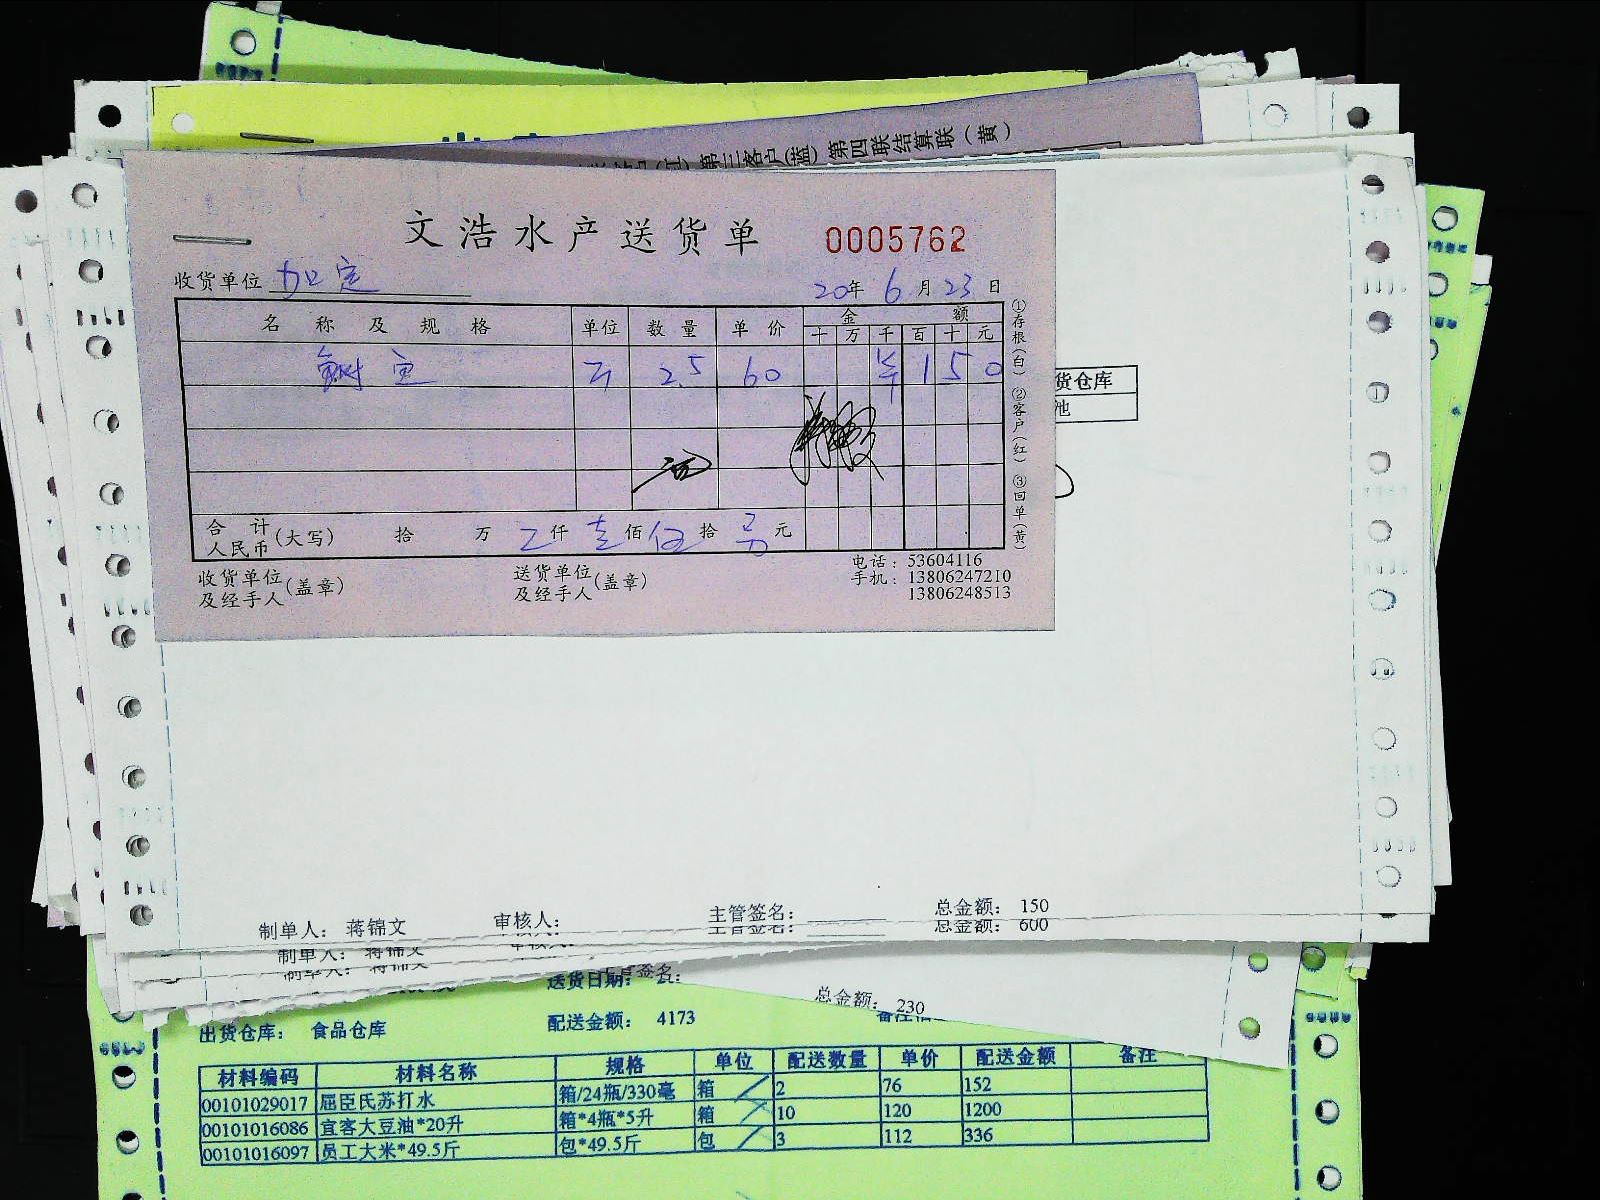 第三客户(蓝) 第四联结算联(黄)
文浩水产送货单 0005762
收货单位 加定 20年 6月 23日
名称及规格 单位 数量 单价 金额
十 万 千 百 十 元
2.5 60 ¥ 1 5 0
①存根(白) ②客户(红) ③回单(黄)
合计人民币(大写) 拾 万 仟 壹佰 伍拾 元
收货单位及经手人(盖章) 送货单位及经手人(盖章)
电话:53604116
手机:13806247210
13806248513
货仓库
池
制单人: 蒋锦文 审核人: 主管签名: 总金额: 150
主管签名: 总金额: 600
制单人: 蒋锦文 审核人:
制单人: 蒋锦文
送货日期:
总金额: 230
出货仓库: 食品仓库 配送金额: 4173
材料编码 材料名称 规格 单位 配送数量 单价 配送金额 备注
00101029017 屈臣氏苏打水 箱/24瓶/330毫 箱 2 76 152
00101016086 宜客大豆油*20升 箱*4瓶*5升 箱 10 120 1200
00101016097 员工大米*49.5斤 包*49.5斤 包 3 112 336